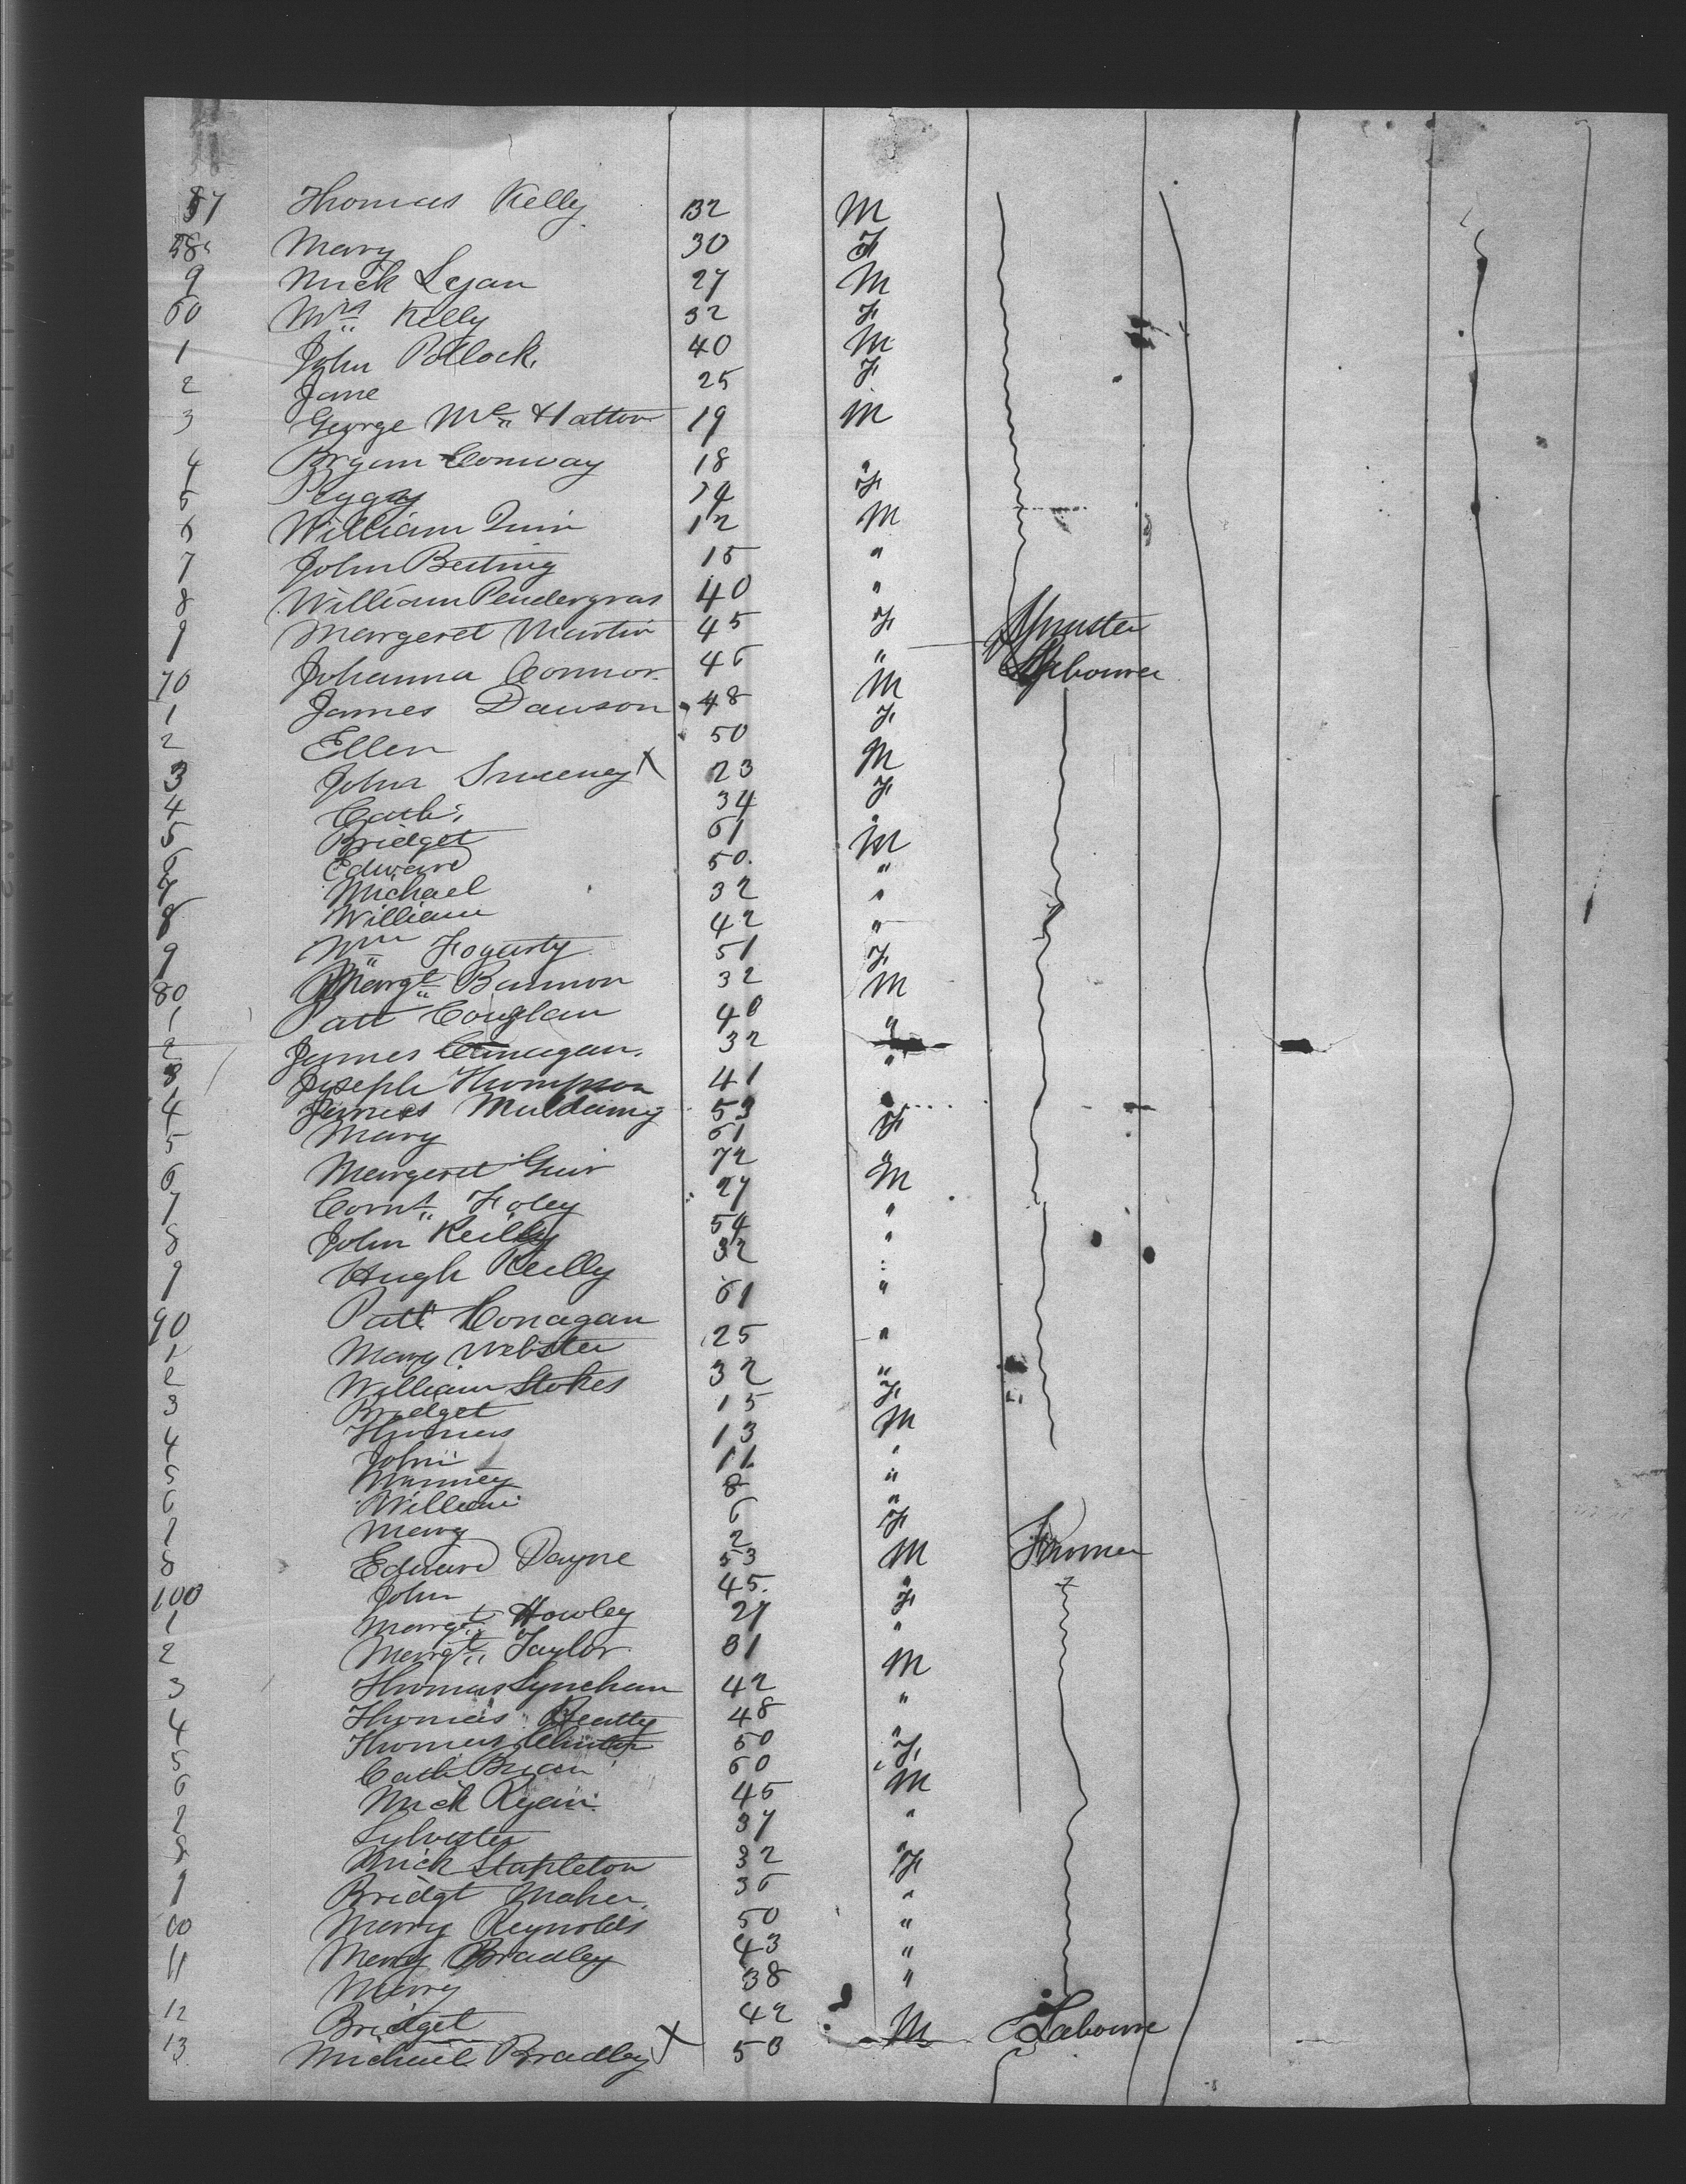 57 Thomas Kelly 32 M
58 Mary 30 F
9 Mick 27 M
60 Mrs Kelly 32 F
1 John Pollock 40 M
2 Jane 25 F
3 George Mc Hatton 19 M
4 Bryan Conway 18 "
5 Peggy 14 F
6 William Quin 12 M
7 John 15 "
8 William Pendergras 40 "
9 Margeret Martin 45 F
70 Johanna Connor 46 " Labourer
1 James Dawson 48 M
2 Ellen 50 F
3 John Sweeney X 23 M
4 Cath: 34 F
5 Bridget 61 "
6 Edward 50 M
7 Michael 32 "
8 William 42 "
9 Wm Fogarty 51 "
80 Margt Bannon 32 F
1 Patt Couglan 40 M
2 James 32 "
3 Joseph Thompson 41 "
4 James 53 "
5 Mary 61 F
6 Margeret 72 "
7 Cornt Foley 27 M
8 John Reilly 54 "
9 Hugh Reilly 32 "
90 Patt Conagan 61 "
1 Mary Webster 25 "
2 William Stokes 32 "
3 Bridget 15 F
4 Thomas 13 M
5 John 11 "
6 8 "
7 William 6 "
8 Mary 2 F
Edward Dayne 53 M Farmer
100 John 45 "
1 Margt Howley 27 F
2 Margt Taylor 31 "
3 Thomas Lynchan 42 M
4 Thomas Beatty 48 "
5 Thomas 50 "
6 Cath Bryan 60 F
7 Mick Ryan 45 M
8 Sylvester 37 "
9 Mick Stapleton 32 "
10 Bridgt Maher 36 F
11 Mary Reynolds 50 "
Mary Bradley 43 "
Mary 38 "
12 Bridget 42 "
13 Michael Bradley X 50 M Labourer